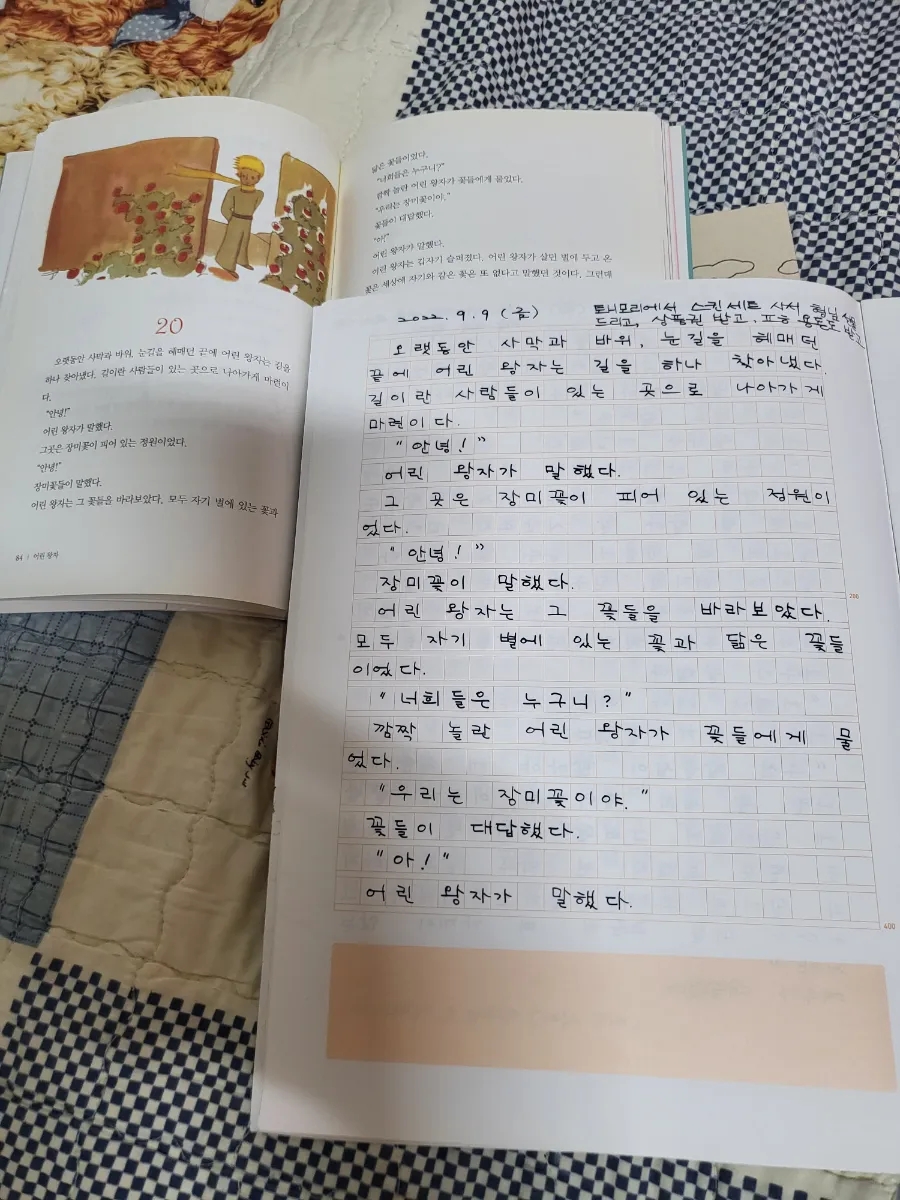 20
오랫동안 사막과 바위, 눈길을 헤매던 끝에 어린 왕자는 길을
하나 찾아냈다. 길이란 사람들이 있는 곳으로 나아가게 마련이
다.
"안녕!"
어린 왕자가 말했다.
그곳은 장미꽃이 피어 있는 정원이었다.
"안녕!"
장미꽃들이 말했다.
어린 왕자는 그 꽃들을 바라보았다. 모두 자기 별에 있는 꽃과
64 | 어린 왕자
닮은 꽃들이었다.
"너희들은 누구니?"
깜짝 놀란 어린 왕자가 꽃들에게 물었다.
"우리는 장미꽃이야."
꽃들이 대답했다.
"아!"
어린 왕자가 말했다.
어린 왕자는 갑자기 슬퍼졌다. 어린 왕자가 살던 별에 두고 온
꽃은 세상에 자기와 같은 꽃은 또 없다고 말했던 것이다. 그런데
2022. 9. 9 (금)
토니모리에서 스킨세트 사서 형님
드리고, 상품권 받고, 용돈도 받고
오랫동안 사막과 바위, 눈길을 헤매던
끝에 어린 왕자는 길을 하나 찾아냈다.
길이란 사람들이 있는 곳으로 나아가게
마련이다.
"안녕!"
어린 왕자가 말했다.
그 곳은 장미꽃이 피어 있는 정원이
었다.
"안녕!"
장미꽃이 말했다.
어린 왕자는 그 꽃들을 바라보았다.
모두 자기 별에 있는 꽃과 닮은 꽃들
이었다.
"너희들은 누구니?"
깜짝 놀란 어린 왕자가 꽃들에게 물
었다.
"우리는 장미꽃이야."
꽃들이 대답했다.
"아!"
어린 왕자가 말했다.
200
400